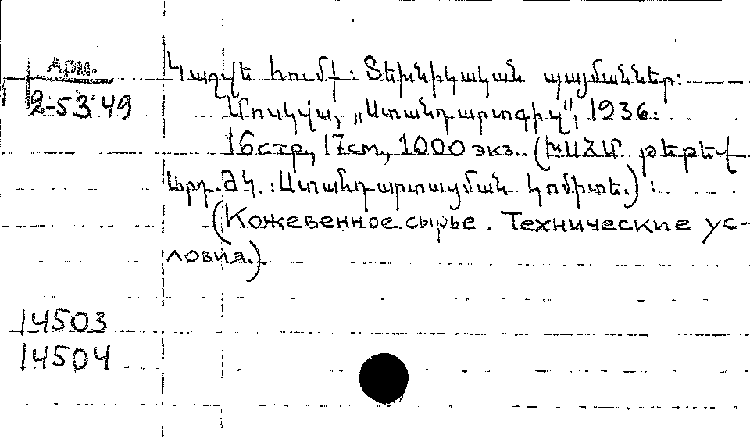 Арм.
2-53.49
Կաշվե հումք: Տեխնիկական պայմաններ:
Մոսկվա, „Ստանդարտգիզ", 1936:
16стр, 17см, 1000 экз. (ԽՍՀՄ թեթև
Արդ.ԺԿ. Ստանդարտացման կոմիտե.):
(Кожевенное сырье. Технические ус-
ловия.)
14503
14504